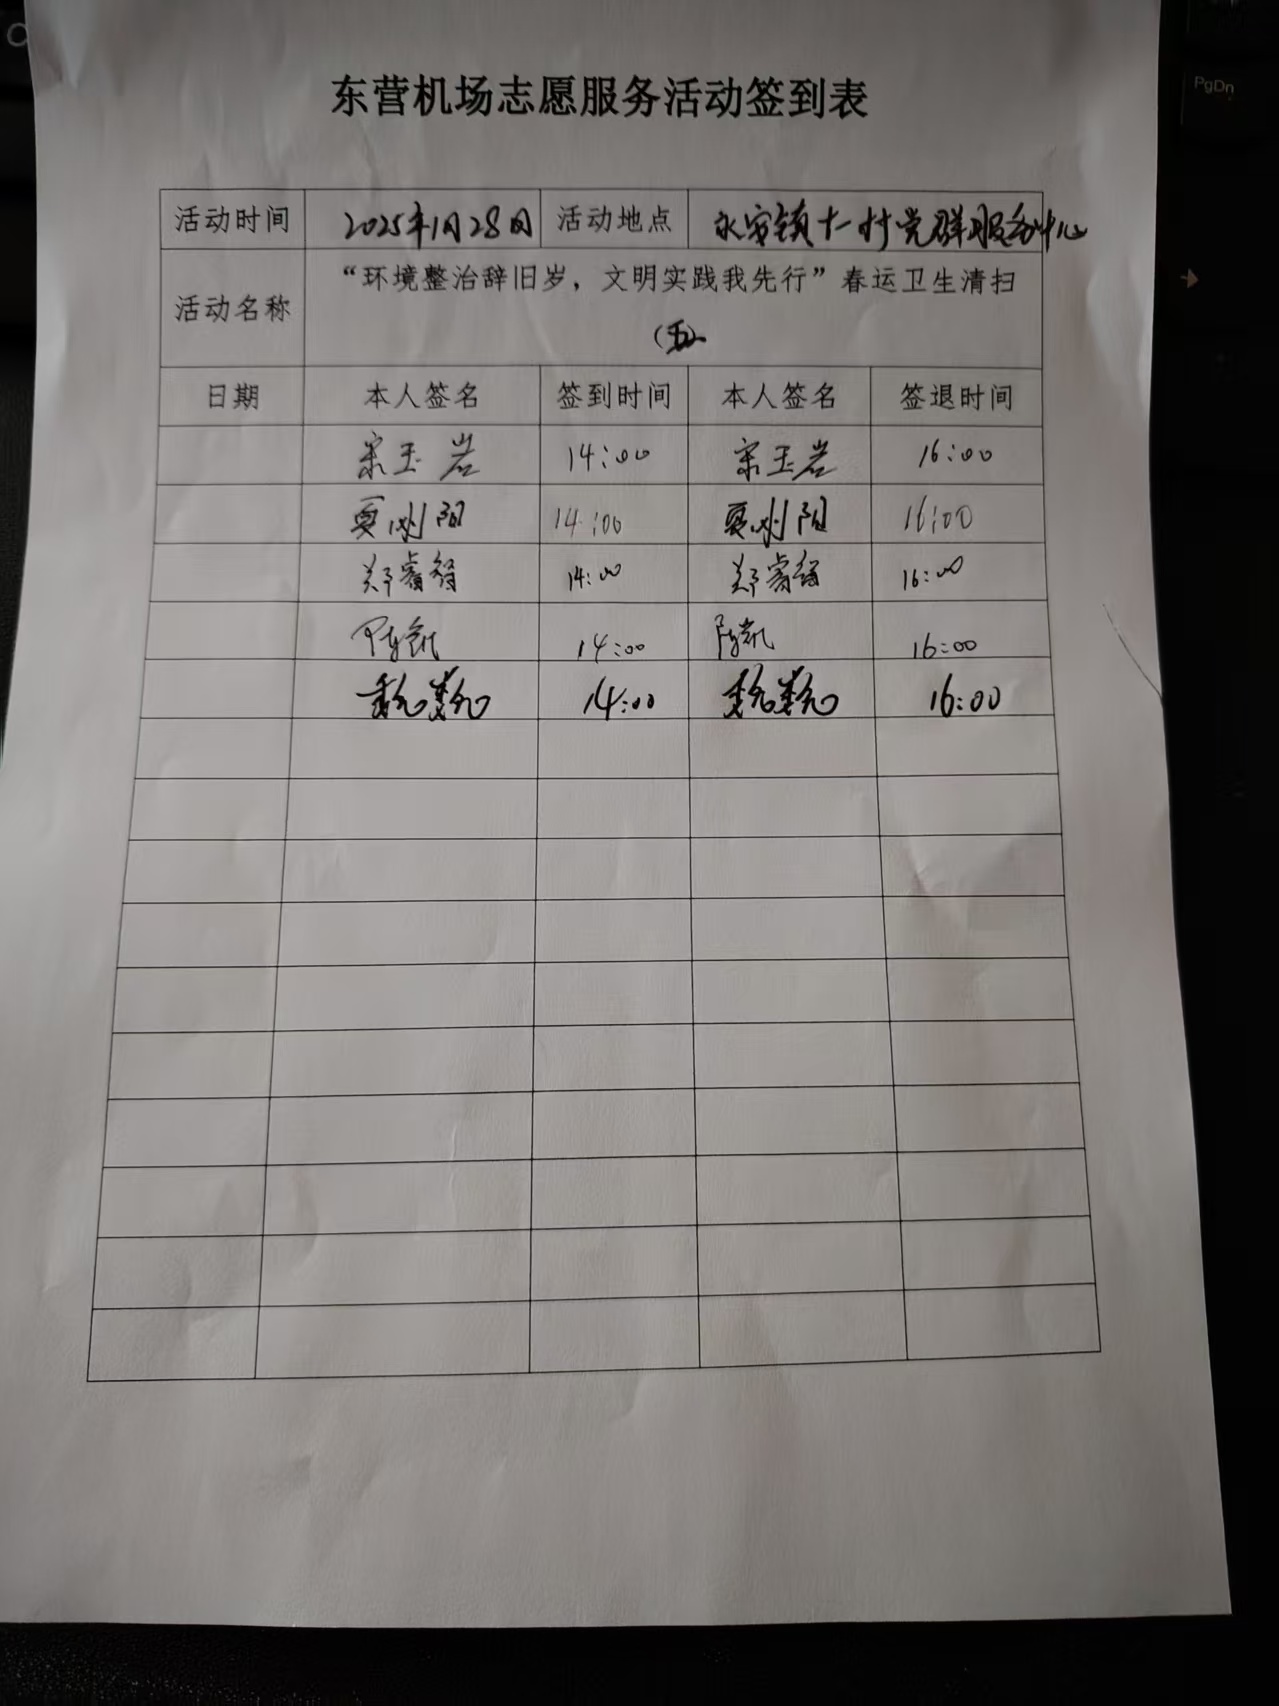 PgDn
东营机场志愿服务活动签到表
活动时间 2025年1月28日 活动地点 永安镇十一村党群服务中心
活动名称 “环境整治辞旧岁，文明实践我先行”春运卫生清扫
（五）
日期 本人签名 签到时间 本人签名 签退时间
宋玉岩 14:00 宋玉岩 16:00
夏刚阳 14:00 夏刚阳 16:00
郑睿智 14:00 郑睿智 16:00
陈凯 14:00 陈凯 16:00
14:00 16:00